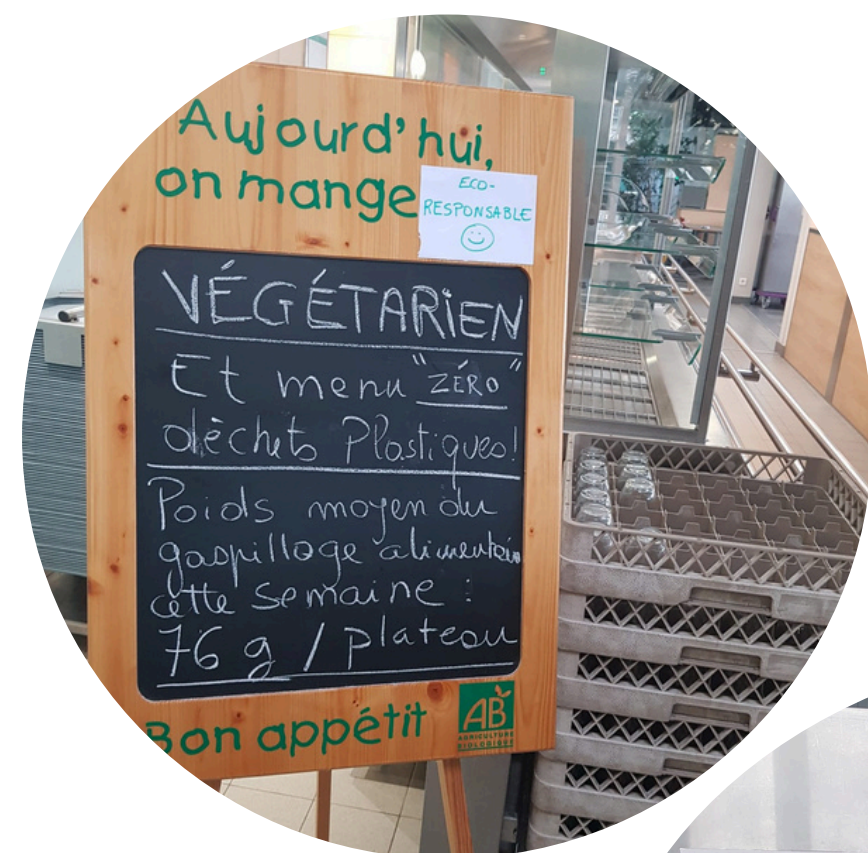 Aujourd'hui,
on mange
ECO-
RESPONSABLE
VÉGÉTARIEN
Et menu "ZÉRO"
déchets Plastiques!
Poids moyen du
gaspillage alimentaire
cette semaine :
76 g / plateau
Bon appétit
AB
AGRICULTURE
BIOLOGIQUE